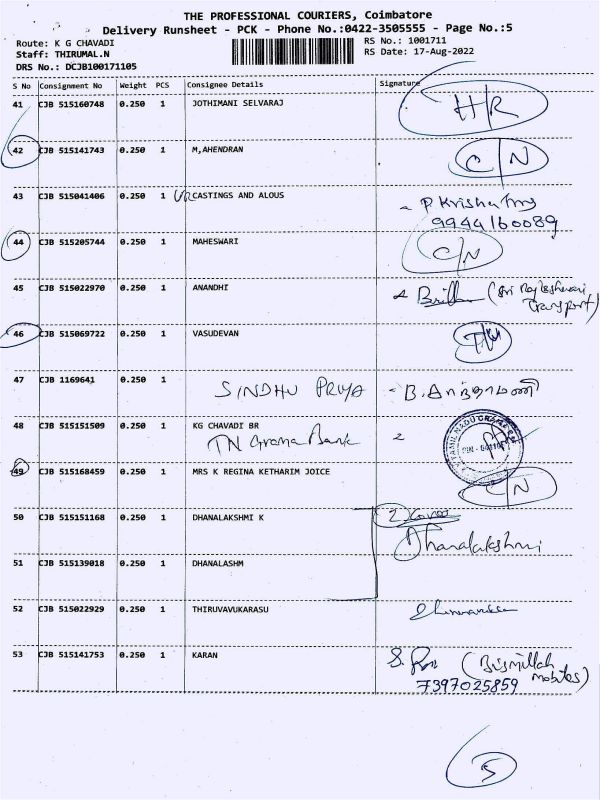 THE PROFESSIONAL COURIERS, Coimbatore
Delivery Runsheet - PCK - Phone No.:0422-3505555 - Page No.:5
Route: K G CHAVADI
RS No.: 1001711
Staff: THIRUMAL.N
RS Date: 17-Aug-2022
DRS No.: DCJB100171105
S No Consignment No Weight PCS Consignee Details Signature
41 CJB 515160748 0.250 1 JOTHIMANI SELVARAJ H/R
42 CJB 515141743 0.250 1 M,AHENDRAN C/N
43 CJB 515041406 0.250 1 CASTINGS AND ALOUS
9944160089
44 CJB 515205744 0.250 1 MAHESWARI C/N
45 CJB 515022970 0.250 1 ANANDHI (Sri Rajeshwari
Transport)
46 CJB 515069722 0.250 1 VASUDEVAN
47 CJB 1169641 0.250 1 SINDHU PRIYA
48 CJB 515151509 0.250 1 KG CHAVADI BR
TN Grama Bank
49 CJB 515168459 0.250 1 MRS K REGINA KETHARIM JOICE C/N
50 CJB 515151168 0.250 1 DHANALAKSHMI K
Dhanalakshmi
51 CJB 515139018 0.250 1 DHANALASHM
52 CJB 515022929 0.250 1 THIRUVAVUKARASU
53 CJB 515141753 0.250 1 KARAN (Bismillah
mobiles)
7397025859
5